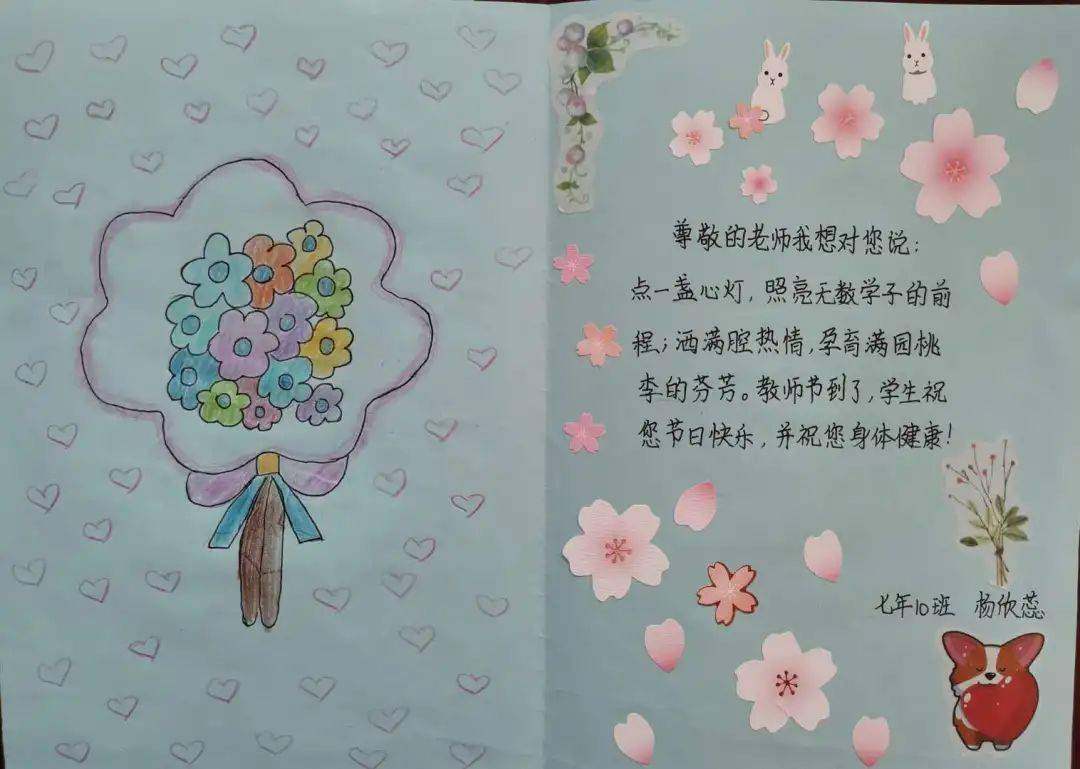 尊敬的老师我想对您说:
点一盏心灯,照亮无数学子的前
程;洒满腔热情,孕育满园桃
李的芬芳。教师节到了,学生祝
您节日快乐,并祝您身体健康!
七年10班 杨欣蕊